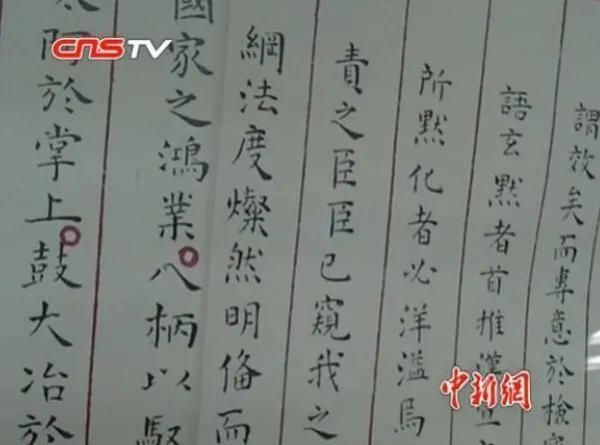 CNSTV
謂效矣而專意於檢
語玄默者首推漢
所默化者必洋溢焉
責之臣臣已窺我之
綱法度燦然明備而
國家之鴻業八柄以馭
太阿於掌上鼓大冶於
中新網